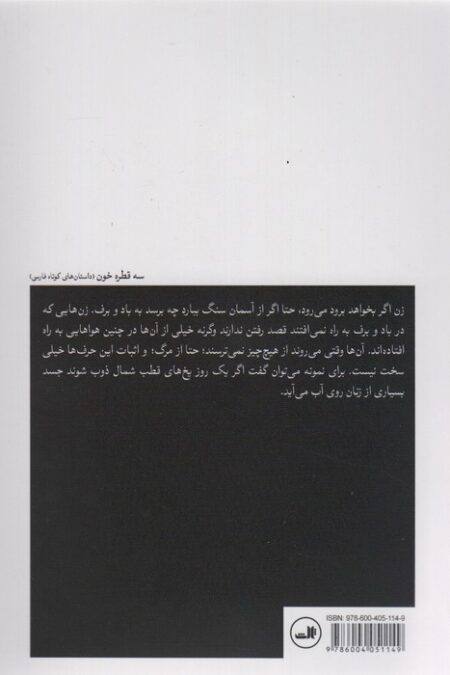 سه قطره خون (داستان‌های کوتاه فارسی)
زن اگر بخواهد برود می‌رود، حتا اگر از آسمان سنگ ببارد چه برسد به باد و برف. زن‌هایی که
در باد و برف به راه نمی‌افتند قصد رفتن ندارند وگرنه خیلی از آن‌ها در چنین هواهایی به راه
افتاده‌اند. آن‌ها وقتی می‌روند از هیچ‌چیز نمی‌ترسند؛ حتا از مرگ؛ و اثبات این حرف‌ها خیلی
سخت نیست. برای نمونه می‌توان گفت اگر یک روز یخ‌های قطب شمال ذوب شوند جسد
بسیاری از زنان روی آب می‌آید.
ISBN: 978-600-405-114-9
9 786004 051149
ثالث